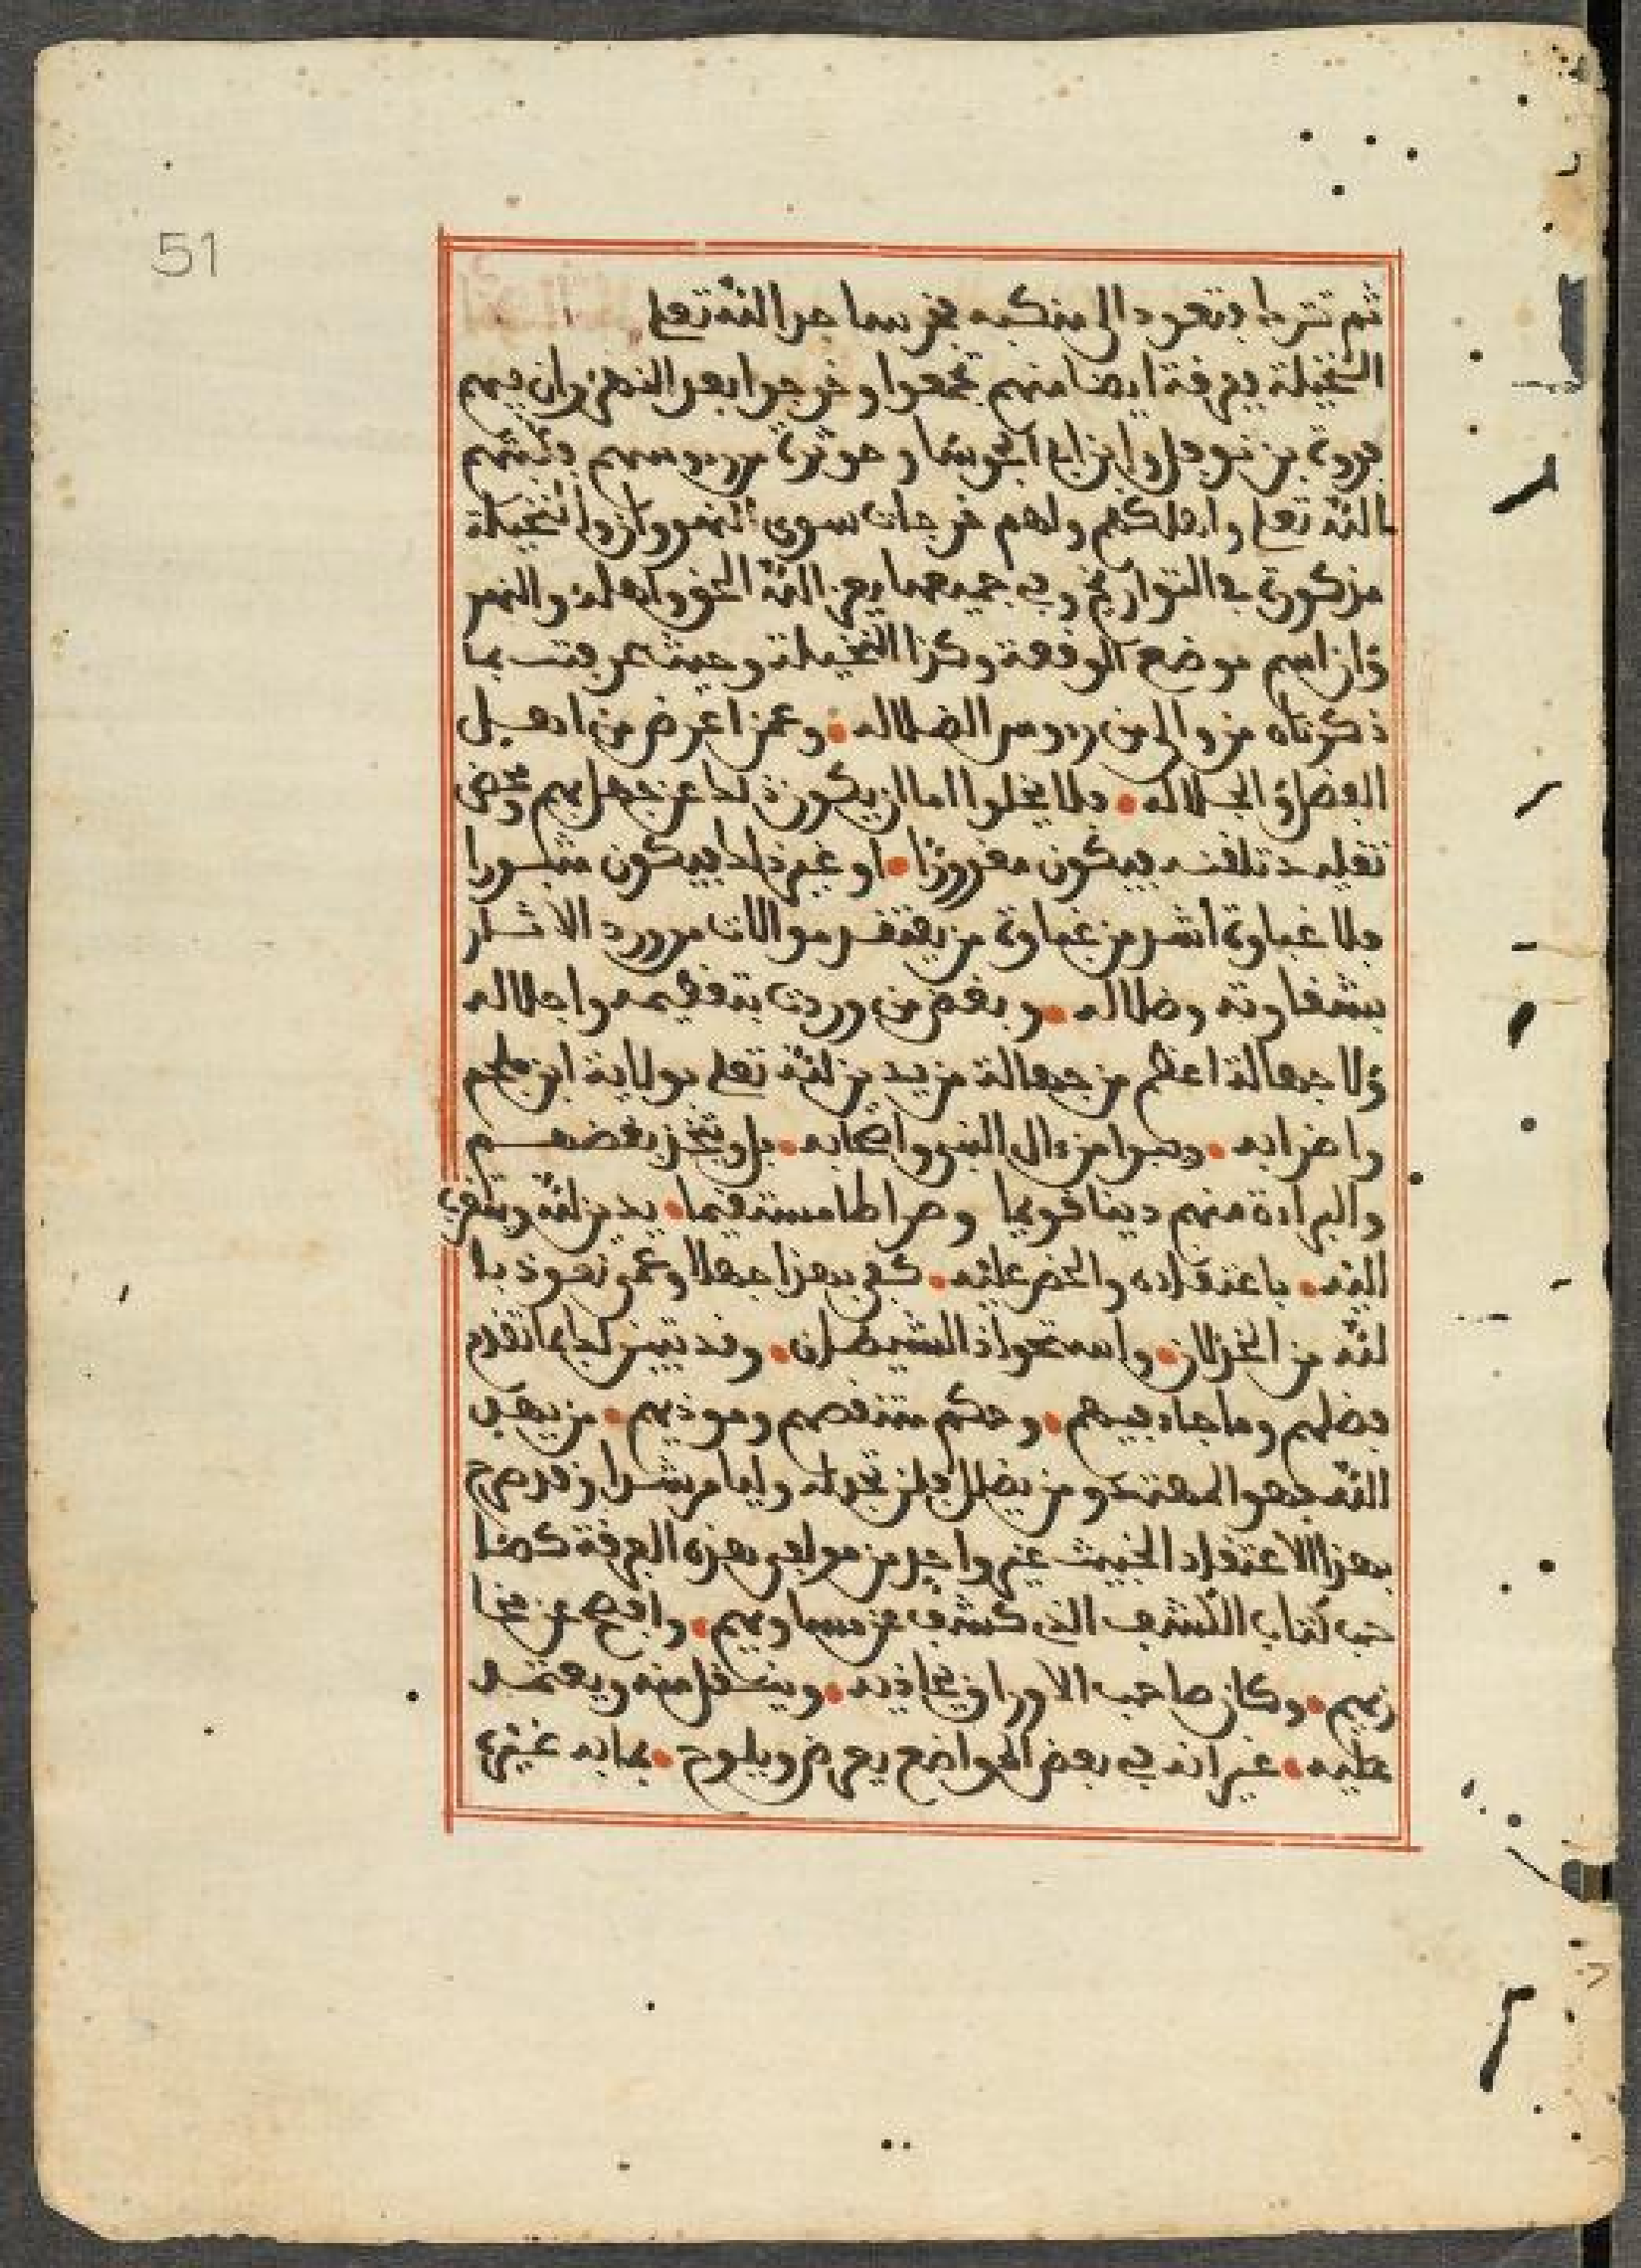 51
ثم تترك فتعود الى منكبه فخر ساجدا لله تعلى
النخيلة فرقة ايضا منهم تجمعوا وخرجوا بعد النهروان فيهم
فروة بن نوفل وابن ابي الحوساء وحوثرة من رءوسهم
الله تعلى واهلكهم ولهم خرجات سوى النهروان والنخيلة
مذكورة في التواريخ وفي جميعها يعز الله الحق واهله والنهر
وان اسم موضع الوقعة وكذا النخيلة وحيث عرفت بما
ذكرناه من والى من رءوس الضلاله وعمن اعرض من اهل
الفضل والجلاله فلا يخلوا اما ان يكون ذلك عن جهل بهم ومحض
تقليد تلقنه فيكون مغرورا او غير ذلك فيكون مثبورا
فلا غباوة اشد من غباوة من يعتقد موالات من ورد الاثار
بشقاوته وضلاله وبغض من وردت بتعظيمه واجلاله
ولا جهالة اعظم من جهالة من يدين لله تعلى بولاية ابن ملجم
واضرابه ويبرا من ءال النبي واصحابه بل ويتخذ بغضهم
والبراءة منهم دينا قويما وصراطا مستقيما يدين لله ويلقى
الله باعتقاده والحض عليه كفى بهذا جهلا وعمى نعوذ با
لله من الخذلان واستحواذ الشيطان وقد تبين لك بما تقدم
فضلهم وما جاء فيهم وحكم متنقصهم وموذيهم من يهد
الله فهو المهتد ومن يضلل فلن تجد له وليا مرشدا وقد صرح
بهذا الاعتقاد الخبيث غير واحد من مولفي هذه الفرقة كصا
حب كتاب الكشف الذي كشف عن مساويهم وافصح عن مخا
زيهم وكان صاحب الاوراق يحاذيه وينقل منه ويعتمد
عليه غير انه في بعض المواضع يعرض ويلوح بما به غيره